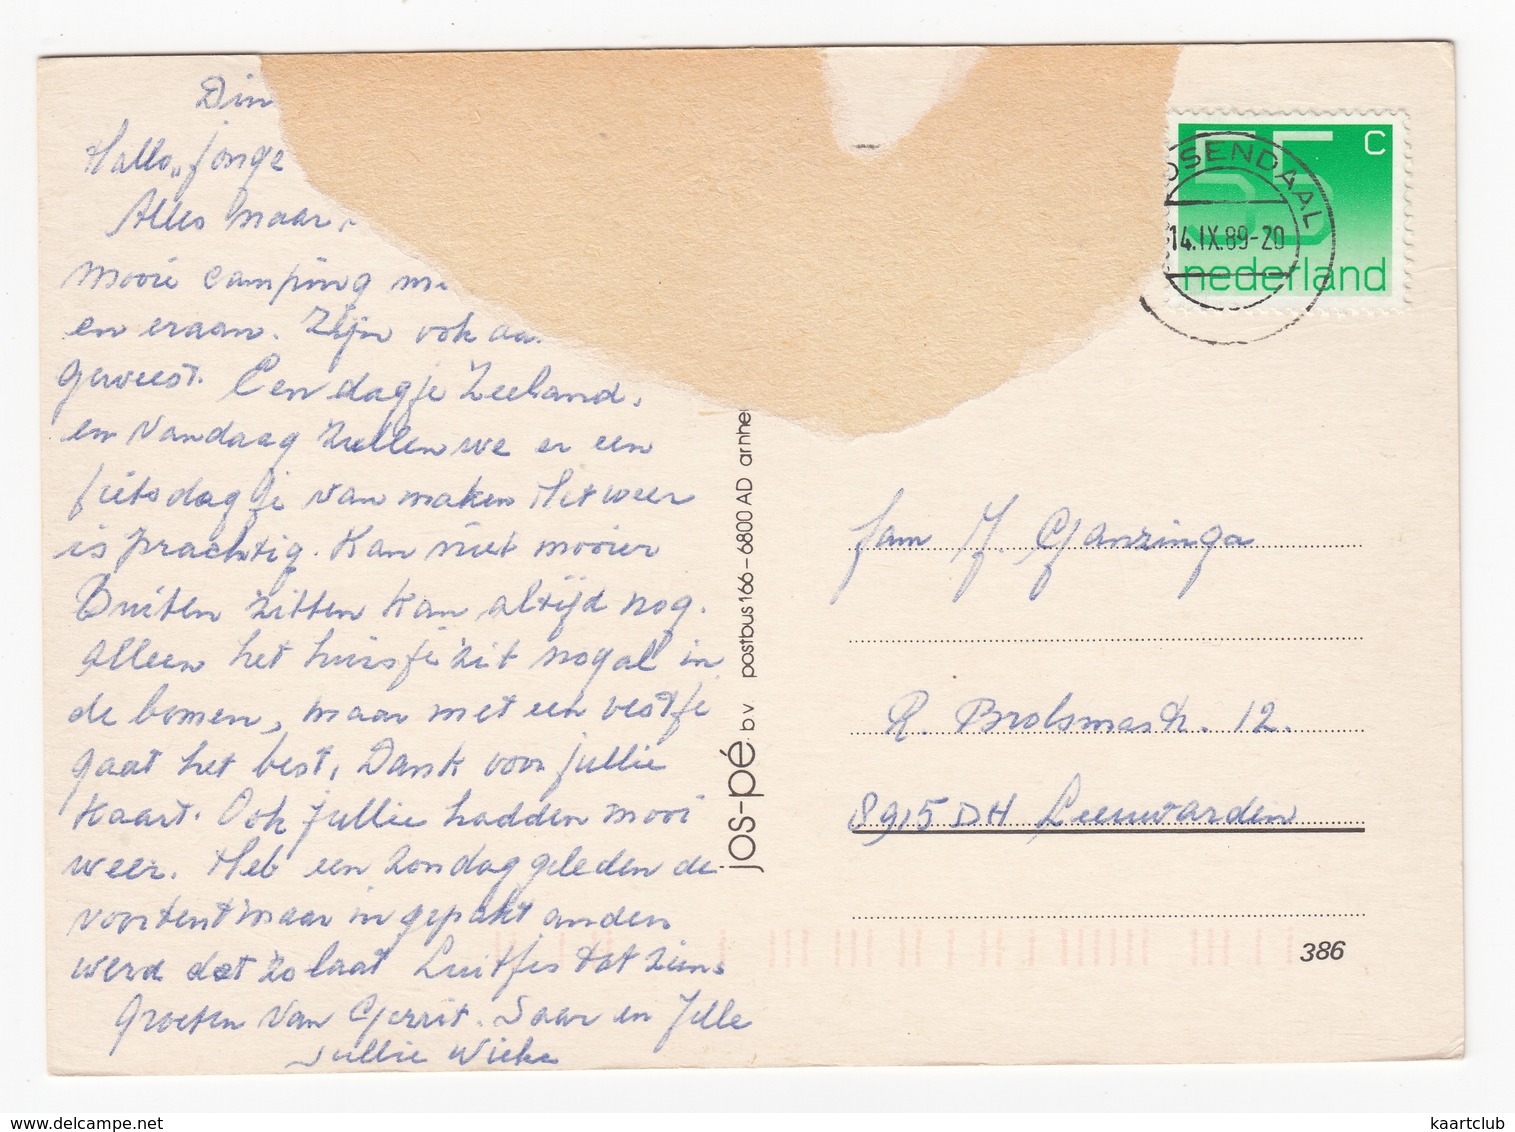 Din
Hallo,, jonge
Alles maar
Mooie camping m
en eraan. Zijn ook aa
geweest. Een dagje Zeeland,
en vandaag zullen we er een
fietsdagje van maken Het weer
is prachtig. Kan niet mooier
Buiten zitten kan altijd nog.
Alleen het huisje zit nogal in
de bomen, maar met een vestje
gaat het best, Dank voor jullie
Kaart. Ook jullie hadden mooi
weer. Heb een zondag geleden de
voortent maar ingepakt anders
werd dat zo laat Luitjes tot ziens
Groeten van Gerrit. Saar en Jelle
Jullie Wieke
jos-pé bv postbus 166-6800 AD arnhe
55 c
nederland
OSENDAAL
14.IX.89-20
fam J. Ganzinga
R. Brolsmastr. 12.
8915DH Leeuwarden
386
kaartclub